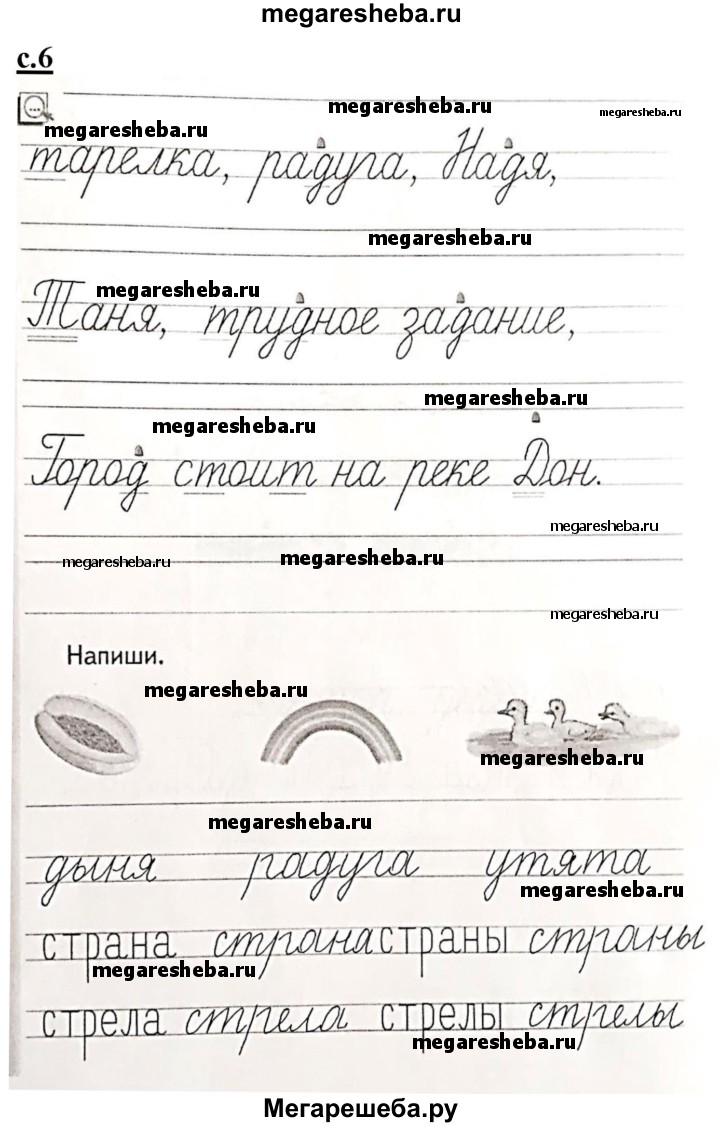 megaresheba.ru
с.6
megaresheba.ru
megaresheba.ru
megaresheba.ru
тарелка, радуга, Надя,
megaresheba.ru
megaresheba.ru
Таня, трудное задание,
megaresheba.ru
megaresheba.ru
Город стоит на реке Дон.
megaresheba.ru
megaresheba.ru
megaresheba.ru
megaresheba.ru
Напиши.
megaresheba.ru
megaresheba.ru
megaresheba.ru
дыня радуга утята
megaresheba.ru
страна страна страны страны
megaresheba.ru
стрела стрела стрелы стрелы
megaresheba.ru
Мегарешеба.ру